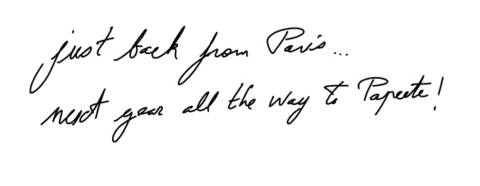 just back from Paris...
next year all the way to Papeete!